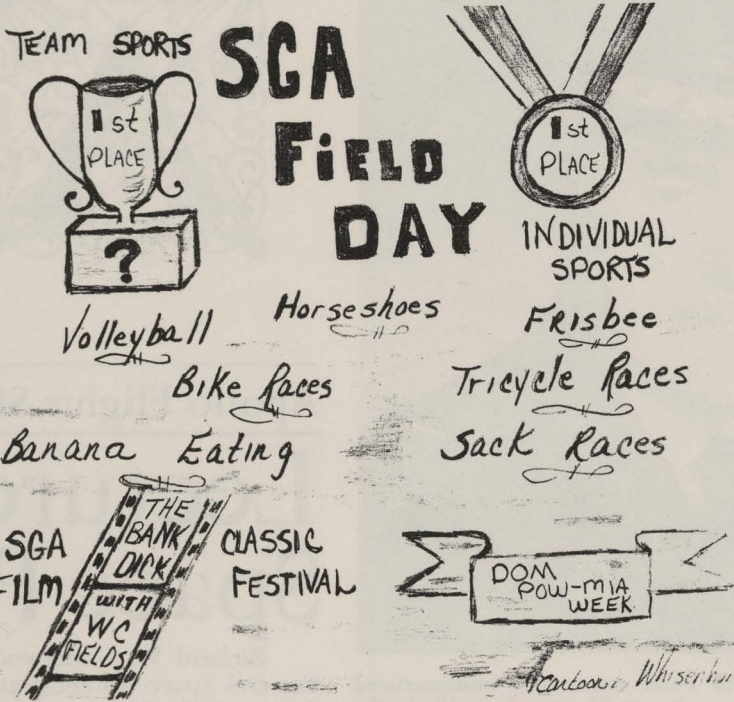 TEAM SPORTS
1st
PLACE
?
SGA
FiELD
DAY
1st
PLACE
INDIVIDUAL
SPORTS
Volleyball
Horseshoes
FRisbee
Bike Races
Tricycle Races
Banana Eating
Sack Races
SGA
FILM
THE
BANK
DICK
WITH
WC
FIELDS
CLASSIC
FESTIVAL
DOM
POW-MIA
WEEK
Cartoon